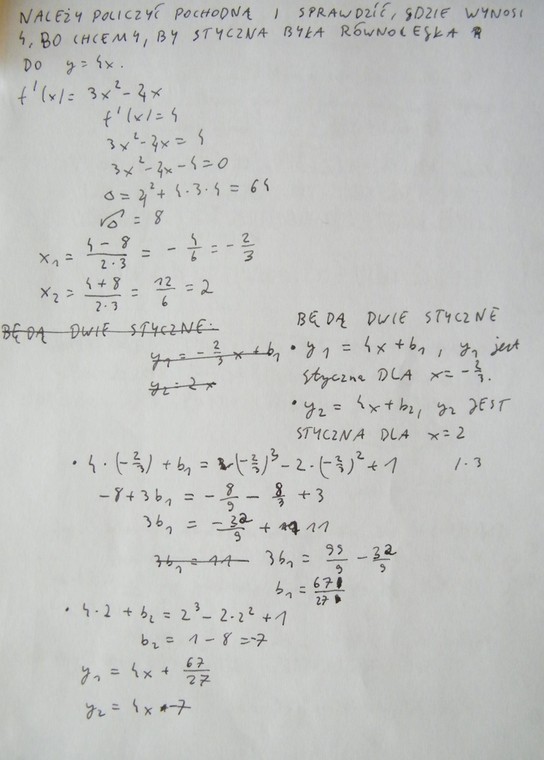 NALEŻY POLICZYĆ POCHODNĄ I SPRAWDZIĆ, GDZIE WYNOSI
4, BO CHCEMY, BY STYCZNA BYŁA RÓWNOLEGŁA
DO y = 4x.
f'(x) = 3x² - 4x
f'(x) = 4
3x² - 4x = 4
3x² - 4x - 4 = 0
Δ = 4² + 4·3·4 = 64
√Δ = 8
x₁ = (4-8)/(2·3) = -4/6 = -2/3
x₂ = (4+8)/(2·3) = 12/6 = 2
BĘDĄ DWIE STYCZNE:
y₁ = -2/3 x + b₁
y₂ = 2x
BĘDĄ DWIE STYCZNE
• y₁ = 4x + b₁, y₁ jest
styczna DLA x = -2/3.
• y₂ = 4x + b₂, y₂ JEST
STYCZNA DLA x = 2
• 4·(-2/3) + b₁ = (-2/3)³ - 2·(-2/3)² + 1 /·3
-8 + 3b₁ = -8/9 - 8/3 + 3
3b₁ = -32/9 + 11
3b₁ = 11 3b₁ = 99/9 - 32/9
b₁ = 67/27
• 4·2 + b₂ = 2³ - 2·2² + 1
b₂ = 1 - 8 = -7
y₁ = 4x + 67/27
y₂ = 4x - 7